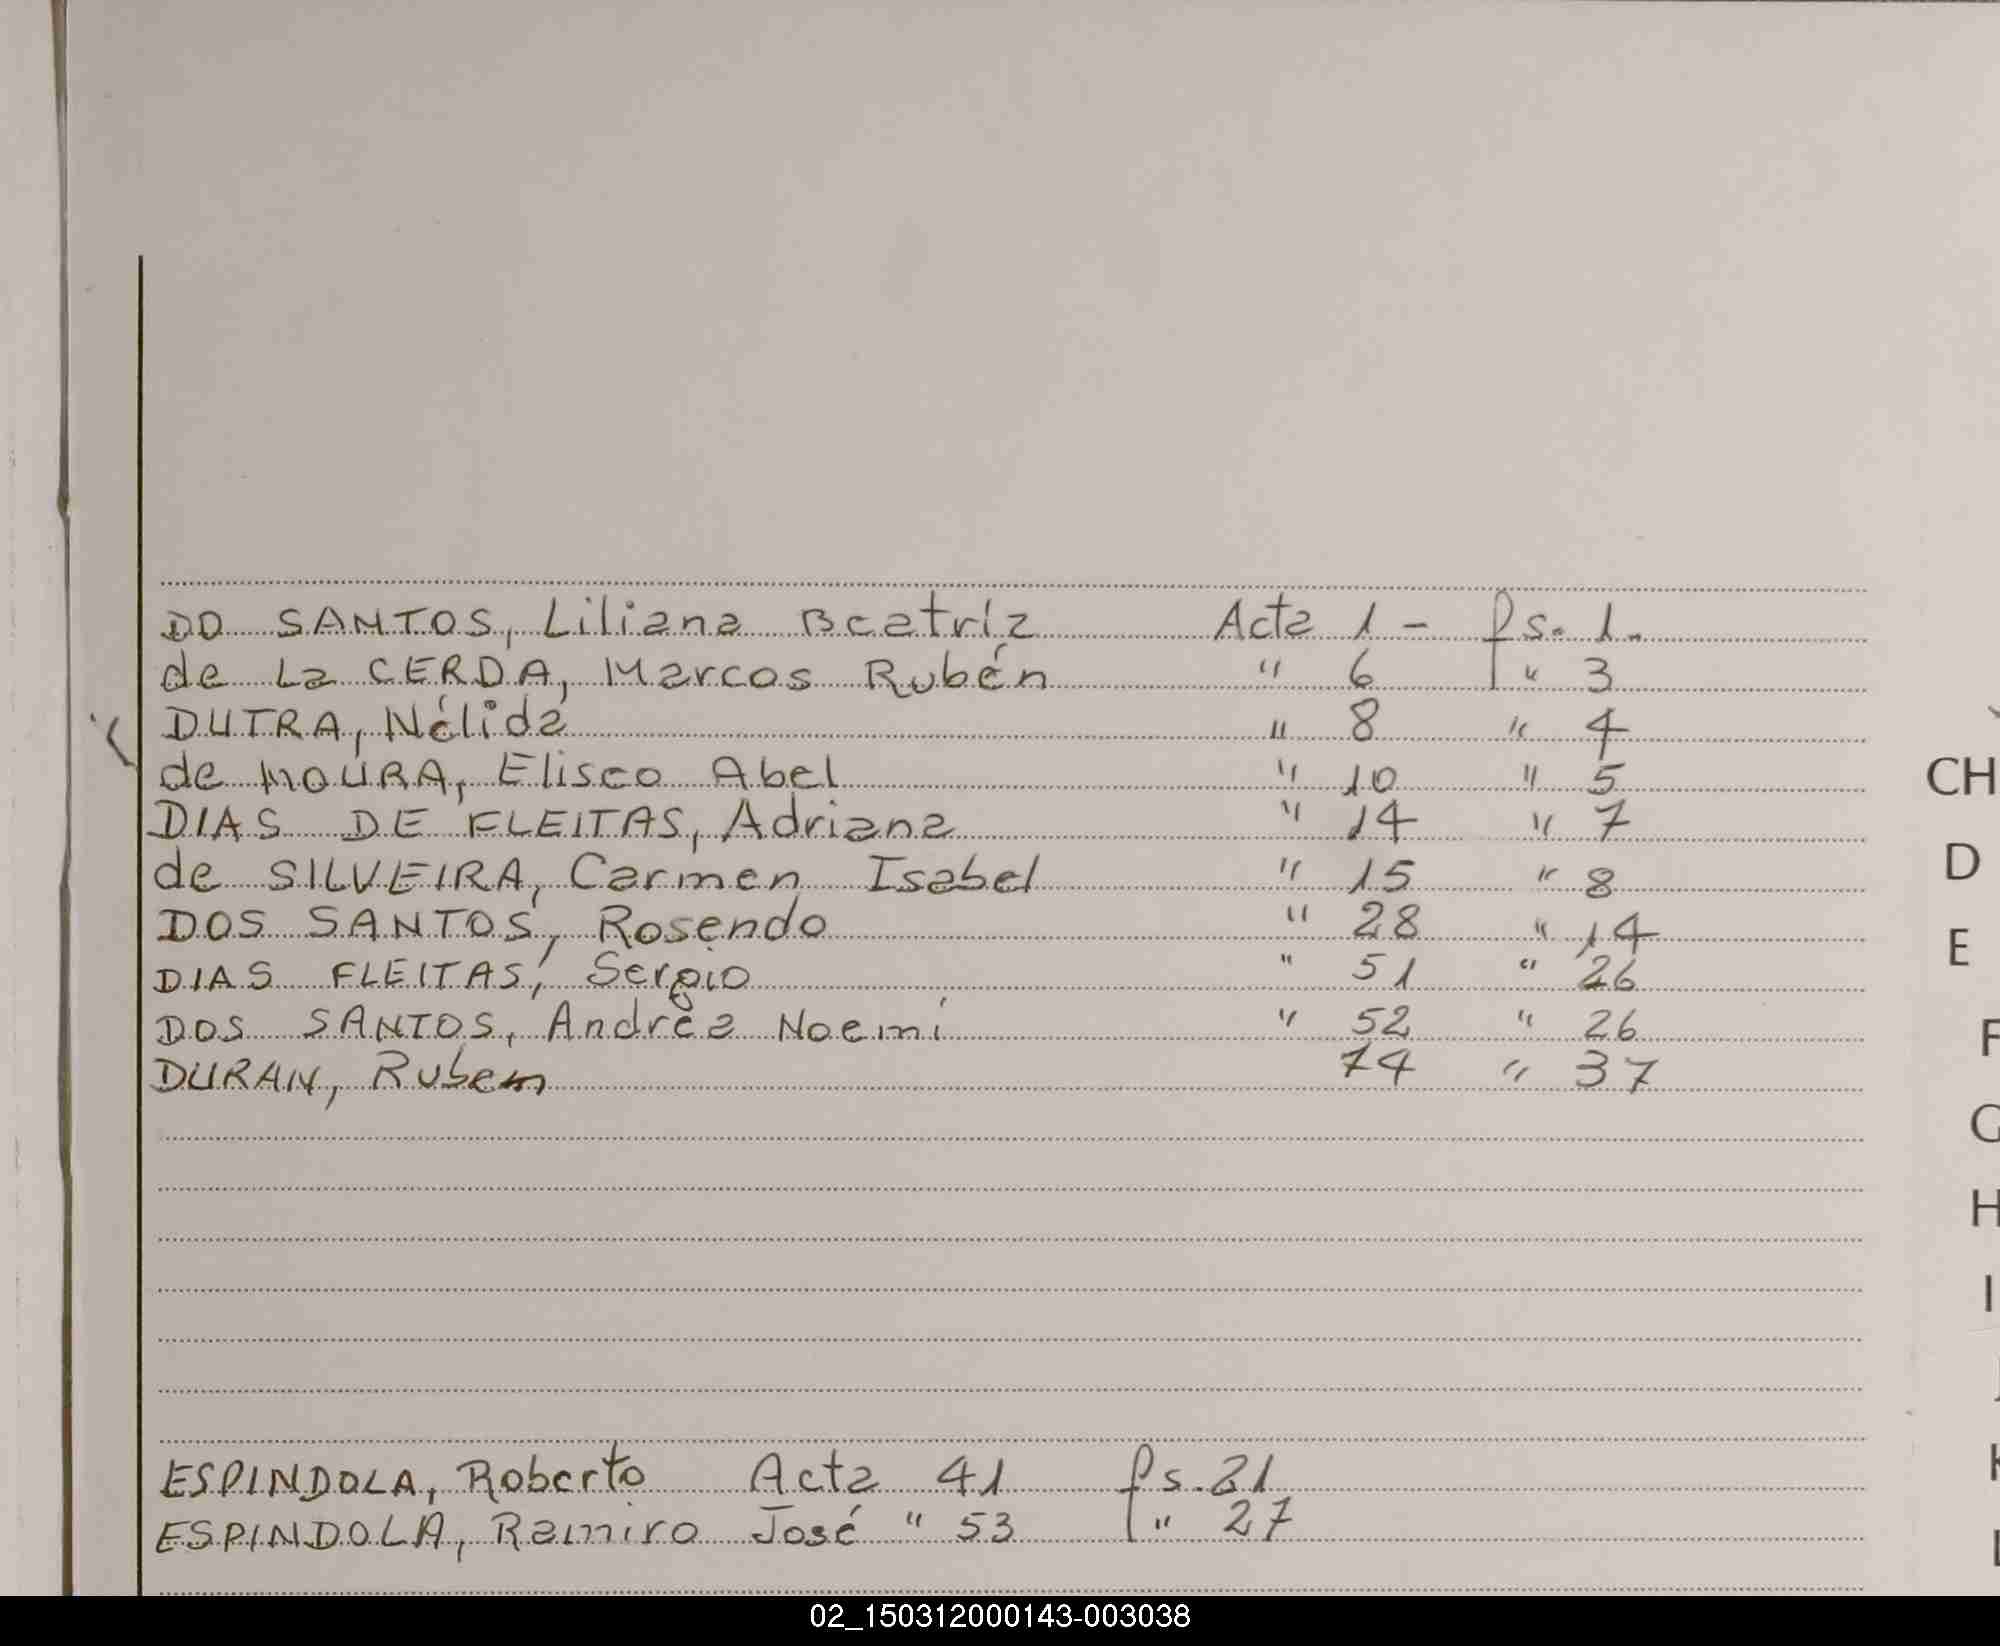 DO SANTOS, Liliana Beatríz Acta 1 - fs. 1.
de La CERDA, Marcos Rubén " 6 " 3
DUTRA, Nélida " 8 " 4
de MOURA, Eliseo Abel " 10 " 5
DIAS DE FLEITAS, Adriana " 14 " 7
de SILVEIRA, Carmen Isabel " 15 " 8
DOS SANTOS, Rosendo " 28 " 14
DIAS FLEITAS, Sergio " 51 " 26
DOS SANTOS, Andréa Noemí " 52 " 26
DURAN, Rubem 74 " 37
ESPINDOLA, Roberto Acta 41 fs. 21
ESPINDOLA, Ramiro José " 53 " 27
CH
D
E
F
G
H
I
J
K
L
02_150312000143-003038